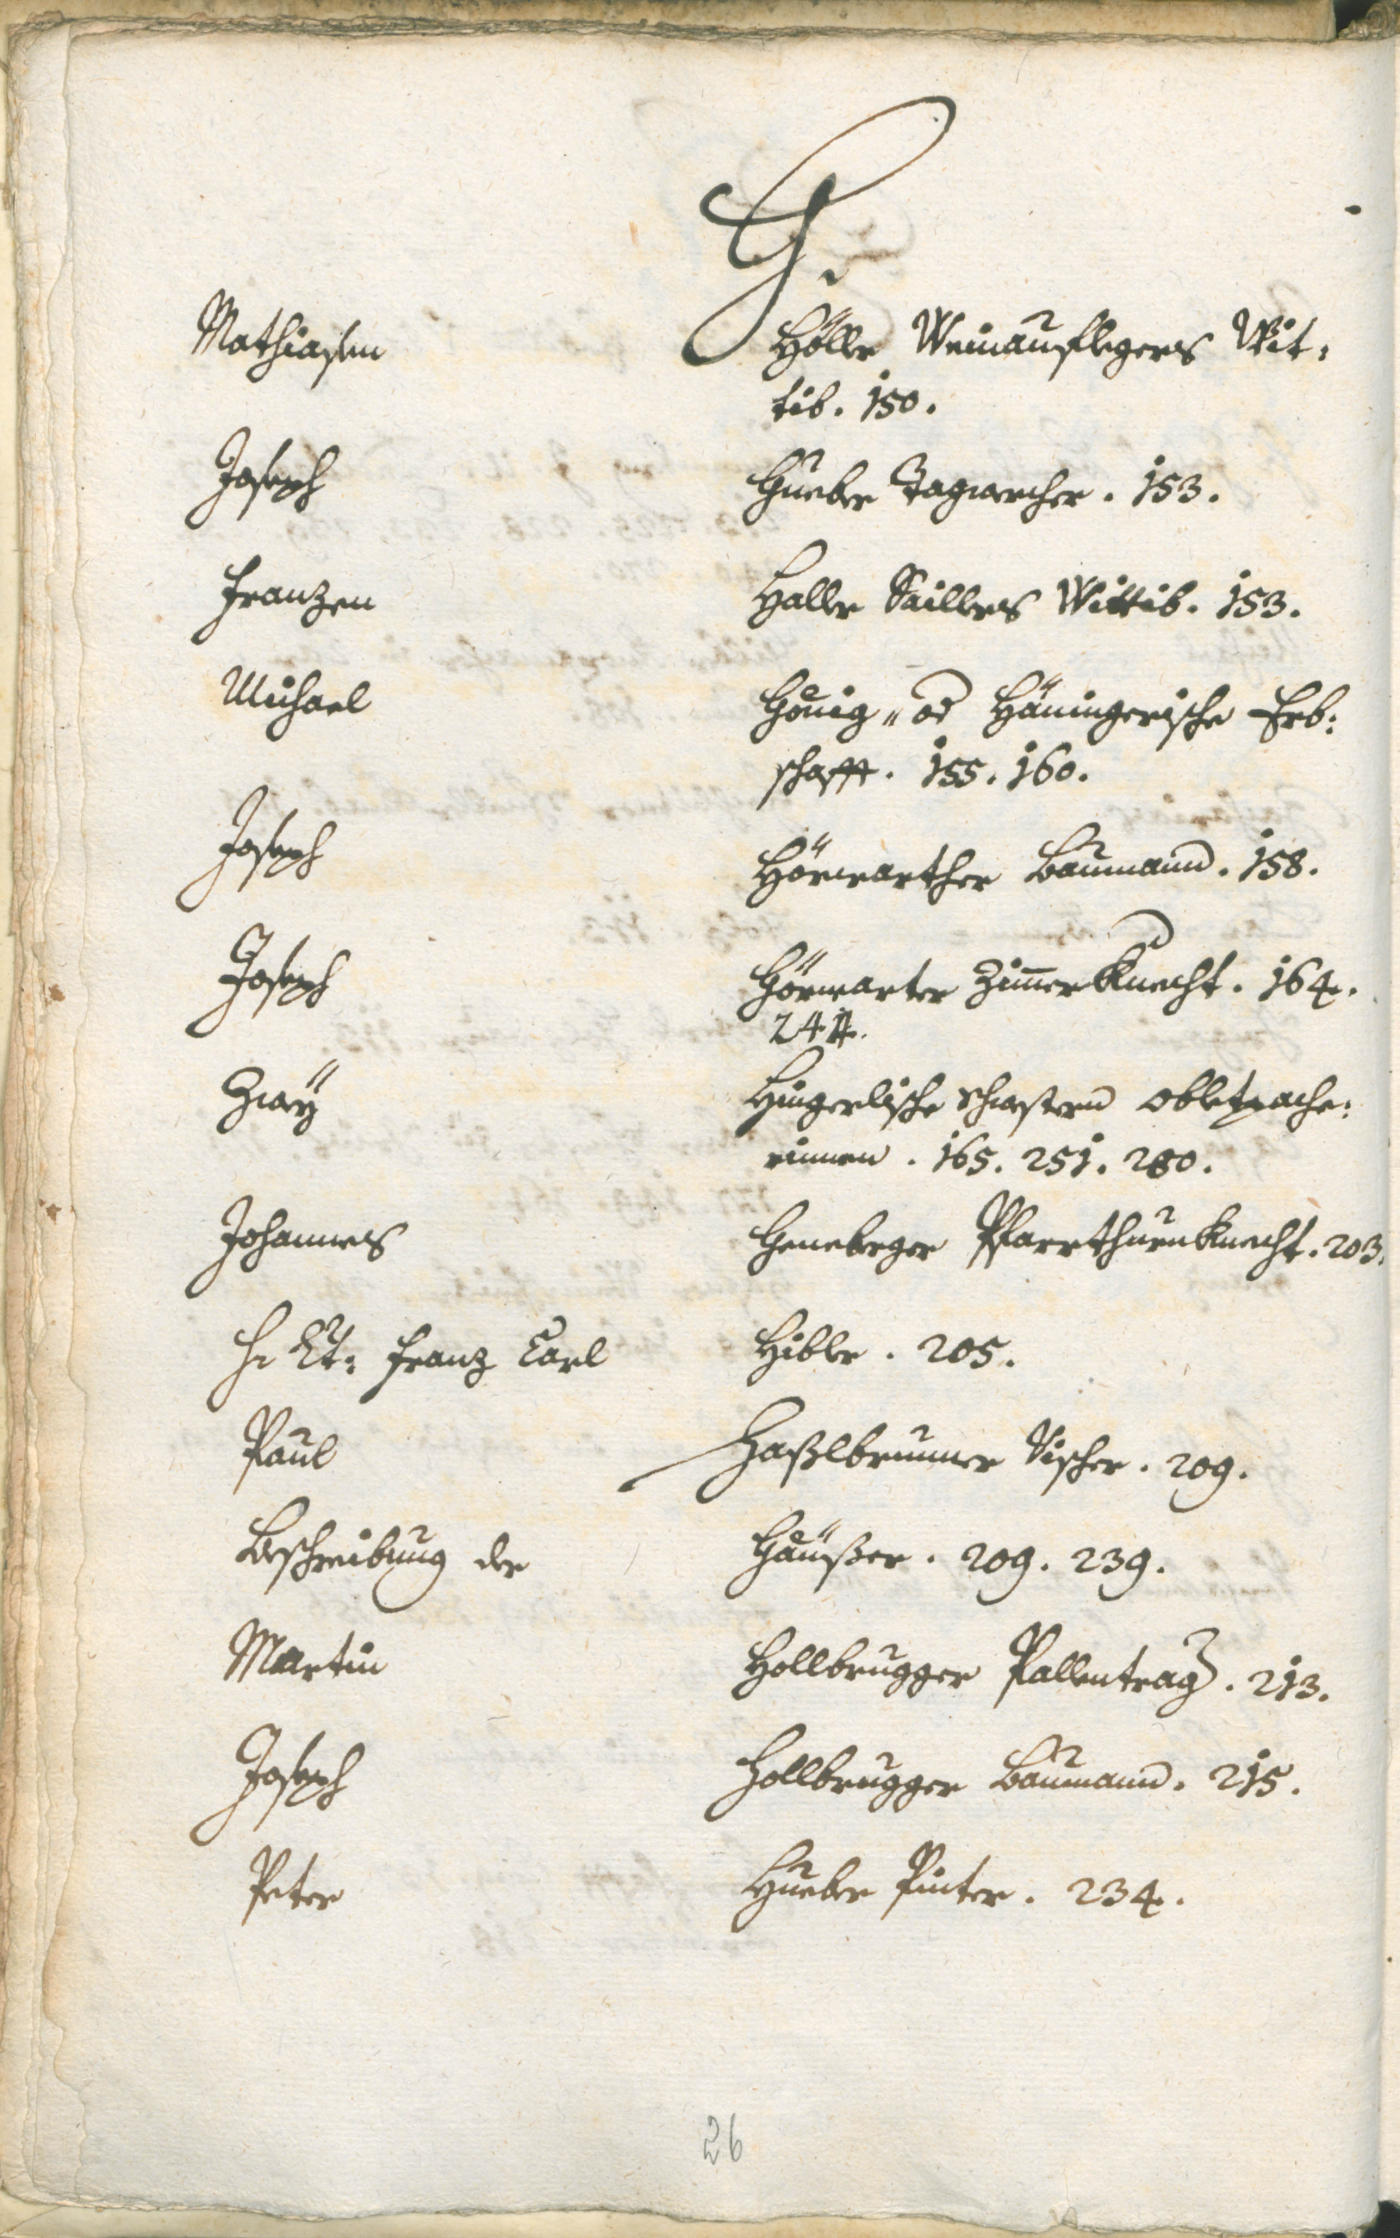 H.
Mathiasen Höller Weinauflegers Wit:
tib. 150.
Joseph Hueber Tagwercher. 153.
Franzen Haller Saillers Wittib. 153.
Michael Hönig „ od Häningerische Erb:
schafft. 155. 160.
Joseph Hörwarther Baumann. 158.
Joseph Hörwarter Zimerknecht. 164.
244.
Zwäy Hingerlische Schwestern Obletmache:
rinnen. 165. 251. 280.
Johannes Heneberger Pfarrthurnknecht. 203.
H: Lt: Franz Carl Hibler. 205.
Paul Haßlbrunner Vischer. 209.
Beschreibung der Häußer. 209. 239.
Martin Hollbrugger Pallentrag. 213.
Joseph Hollbrugger Baumann. 215.
Peter Hueber Pinter. 234.
26